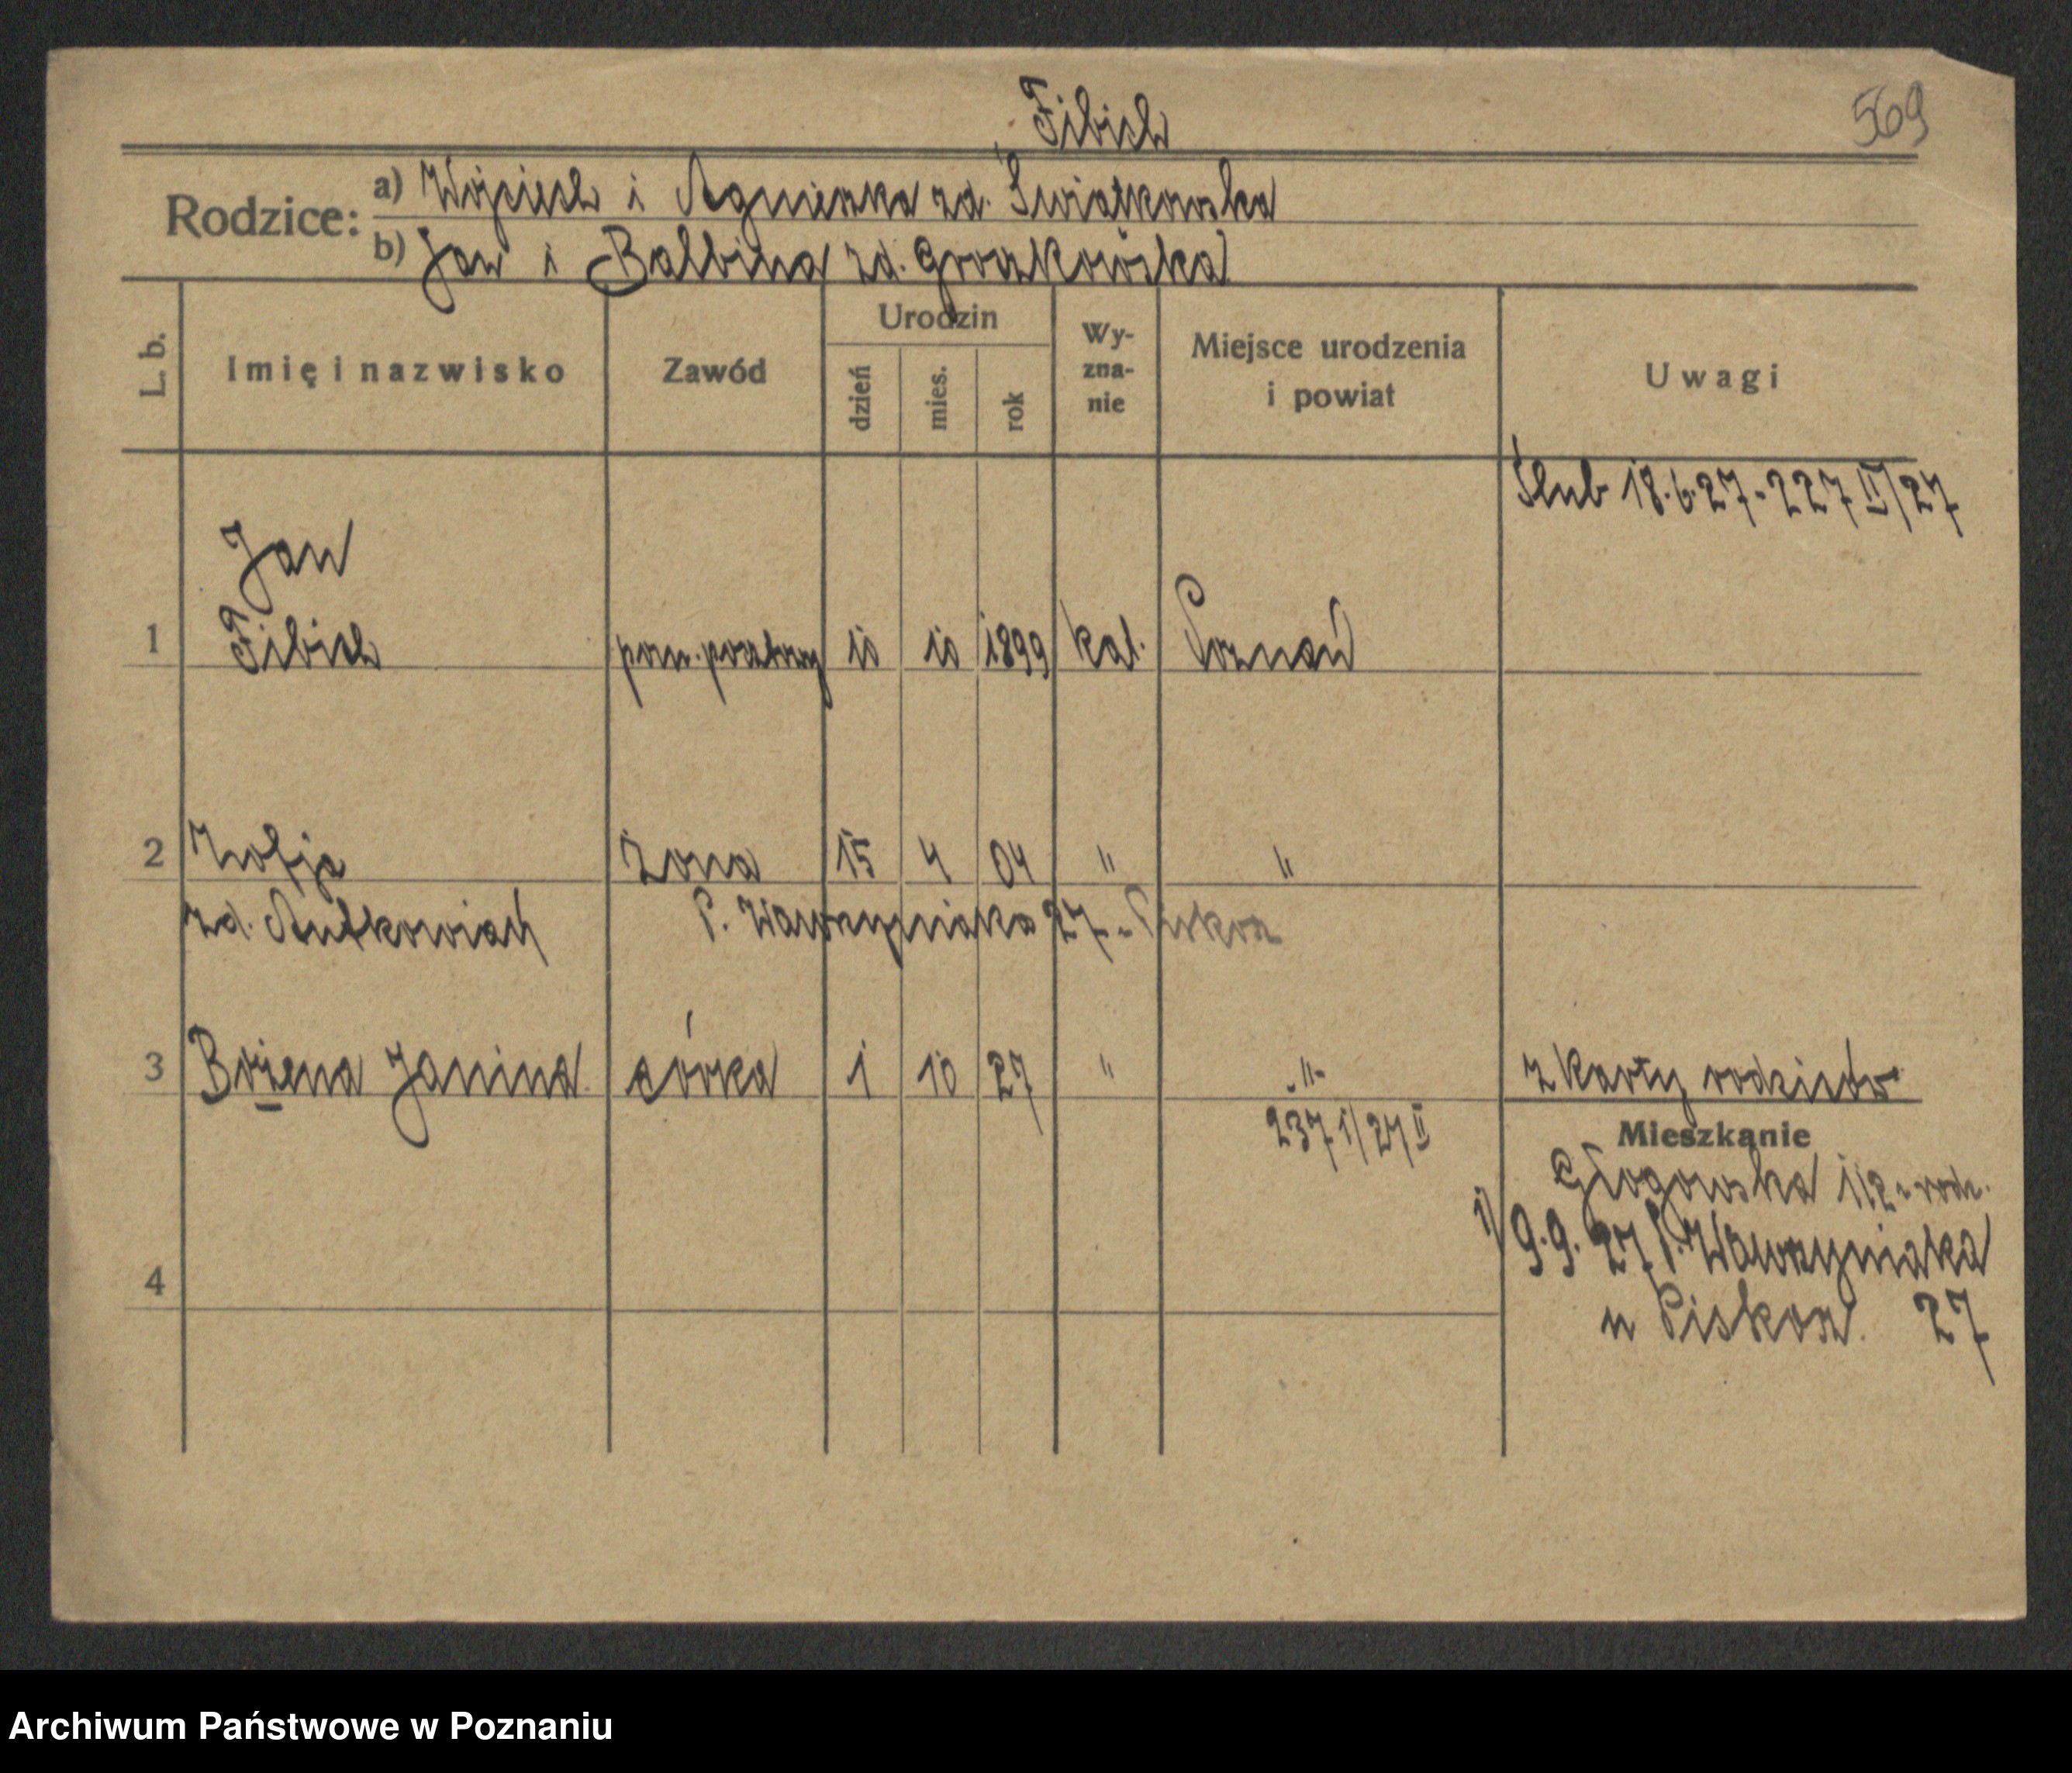 Fibich
569
Rodzice:
a) Wojciech i Agnieszka zd. Świątkowska
b) Jan i Balbina zd. Groszkowska
L. b.
Imię i nazwisko
Zawód
Urodzin
dzień
mies.
rok
Wy-
zna-
nie
Miejsce urodzenia
i powiat
Uwagi
Ślub 18.6.27 - 227 II/27
Jan
1 Fibich pom. pocztowy 10 10 1899 kat. Poznań
2 Zofja żona 15 4 04 " "
zd. Antkowiak P. Wawrzyniaka 27 - Piskorz
3 Bożena Janina córka 1 10 27 " -"- z karty rodziców
237 1/27 II
Mieszkanie
Głogowska 112 - rodz.
1) 9.9.27 P. Wawrzyniaka
u Piskorz. 27
4
Archiwum Państwowe w Poznaniu